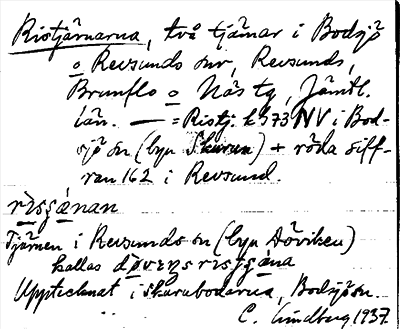 Ristjärnarna, två tjärnar i Bodsjö
o Revsunds snr, Revsunds,
Brunflo o Näs tg, Jämtl.
län. — = Ristj. k 573 NV i Bod-
sjö sn (byn Skurun) + röda siff-
ran 162 i Revsund.
rìsʒánan
Tjärnen i Revsunds sn (byn Döviken)
kallas dø̀vensrestʒána
Upptecknat i Skurubodarna, Bodsjö sn.
C. Lindberg 1937.